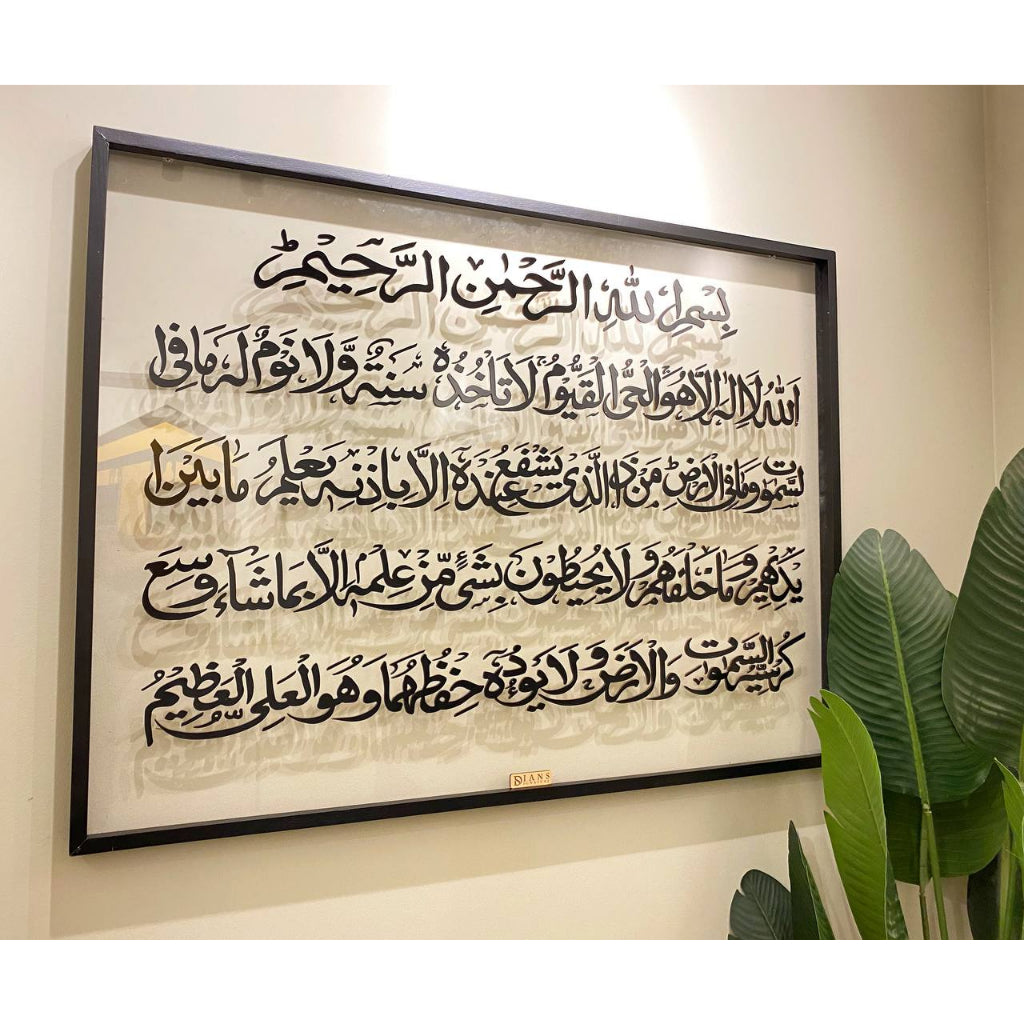 بِسْمِ اللهِ الرَّحْمٰنِ الرَّحِيْمِ
اَللهُ لَا اِلٰهَ اِلَّا هُوَ الْحَىُّ الْقَيُّوْمُ لَا تَاْخُذُهٗ سِنَةٌ وَّلَا نَوْمٌ لَهٗ مَا فِى ا
لسَّمٰوٰتِ وَمَا فِى الْاَرْضِ مَنْ ذَا الَّذِىْ يَشْفَعُ عِنْدَهٗ اِلَّا بِاِذْنِهٖ يَعْلَمُ مَا بَيْنَ ا
يْدِيْهِمْ وَمَا خَلْفَهُمْ وَلَا يُحِيْطُوْنَ بِشَىْءٍ مِّنْ عِلْمِهٖ اِلَّا بِمَا شَآءَ وَسِعَ
كُرْسِيُّهُ السَّمٰوٰتِ وَالْاَرْضَ وَلَا يَـُٔوْدُهٗ حِفْظُهُمَا وَهُوَ الْعَلِىُّ الْعَظِيْمُ
DIANS